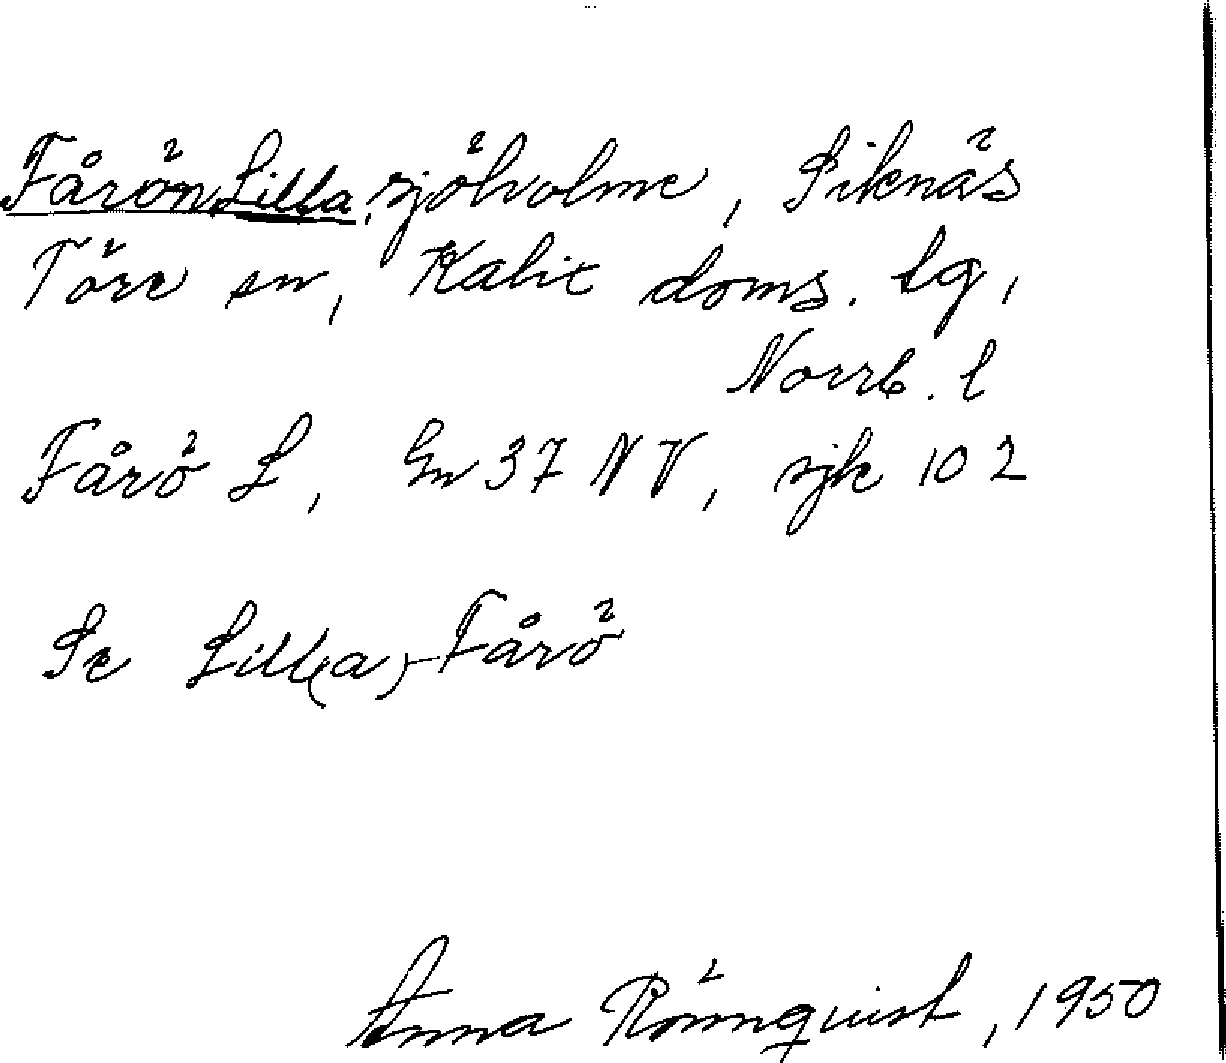 Fårön, Lilla, sjöholme, Siknäs
Töre sn, Kalix doms. lg,
Norrb. l
Fårö L, Gn 37 NV, sjk 102
Se Lill(a)-Fårö
Anna Rönnquist, 1950